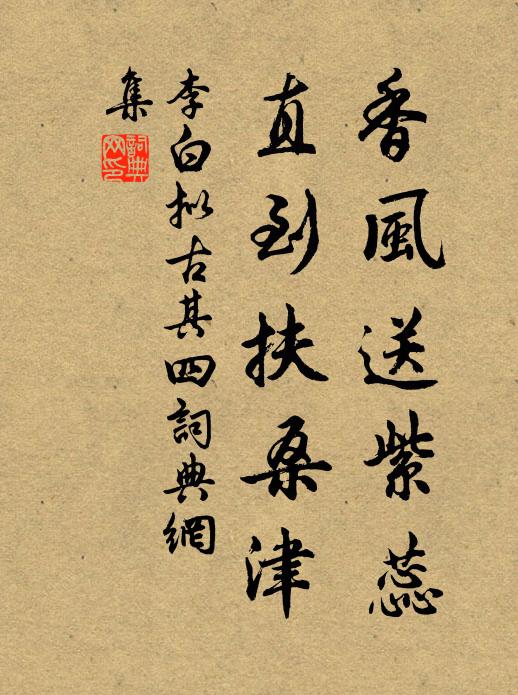 香風送紫蕊
直到扶桑津
李白拟古其四詞典網
集
詞典网印